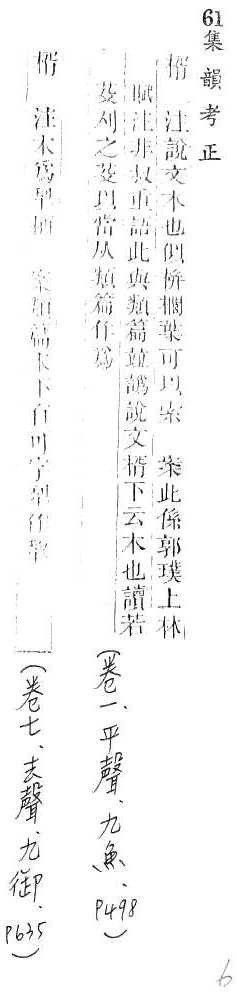 61集韻考正
楈 注說文木也似栟櫚葉可以索 案此係郭璞上林
賦注非叔重語此與類篇竝譌說文楈下云木也讀若
芟刈之芟 以當从類篇作爲
(卷一、平聲、九魚、P498)
楈 注木爲犂柄 案類篇木下有可字犂作犁
(卷七、去聲、九御、P635)
6